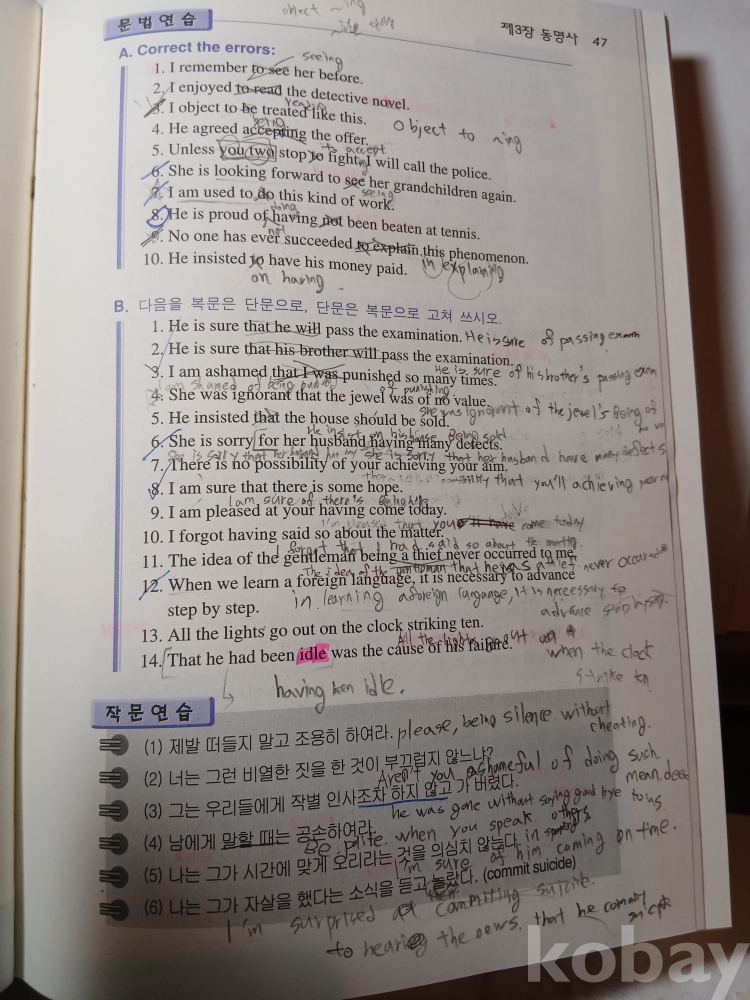 object ~ing
문법연습
제3장 동명사 47
A. Correct the errors:
seeing
1. I remember to see her before.
2. I enjoyed to read the detective novel.
reading
3. I object to be treated like this.
being
object to ~ing
4. He agreed accepting the offer.
to accept
5. Unless you two stop to fight, I will call the police.
6. She is looking forward to see her grandchildren again.
seeing
7. I am used to do this kind of work.
doing
8. He is proud of having not been beaten at tennis.
not
9. No one has ever succeeded to explain this phenomenon.
in explaining
10. He insisted to have his money paid.
on having
B. 다음을 복문은 단문으로, 단문은 복문으로 고쳐 쓰시오.
1. He is sure that he will pass the examination. He is sure of passing exam
2. He is sure that his brother will pass the examination.
He is sure of his brother's passing exam
3. I am ashamed that I was punished so many times.
4. She was ignorant that the jewel was of no value.
She was ignorant of the jewel's being of
5. He insisted that the house should be sold.
6. She is sorry for her husband having many defects.
she is sorry that her husband have many defects
7. There is no possibility of your achieving your aim.
possibility that you'll achieving
8. I am sure that there is some hope.
I am sure of there's being
9. I am pleased at your having come today.
I'm pleased that you have come today
10. I forgot having said so about the matter.
I forgot that I had said so about the matter.
11. The idea of the gentleman being a thief never occurred to me.
The idea of the gentleman that he was a thief never occurred
12. When we learn a foreign language, it is necessary to advance
step by step.
in learning a foreign language, it is necessary to
advance step by step.
13. All the lights go out on the clock striking ten.
All the lights go out
when the clock
strike ten
14. That he had been idle was the cause of his failure.
having been idle.
작문연습
(1) 제발 떠들지 말고 조용히 하여라. please, being silence without
cheating.
(2) 너는 그런 비열한 짓을 한 것이 부끄럽지 않느냐?
Aren't you ashameful of doing such
mean deed
(3) 그는 우리들에게 작별 인사조차 하지 않고 가 버렸다.
he was gone without saying good bye to us
(4) 남에게 말할 때는 공손하여라.
Be polite when you speak others
in speaking
(5) 나는 그가 시간에 맞게 오리라는 것을 의심지 않는다.
I'm sure of him coming on time.
(6) 나는 그가 자살을 했다는 소식을 듣고 놀랐다. (commit suicide)
I'm surprised at commiting suicide.
to hearing the news that he commit
kobay